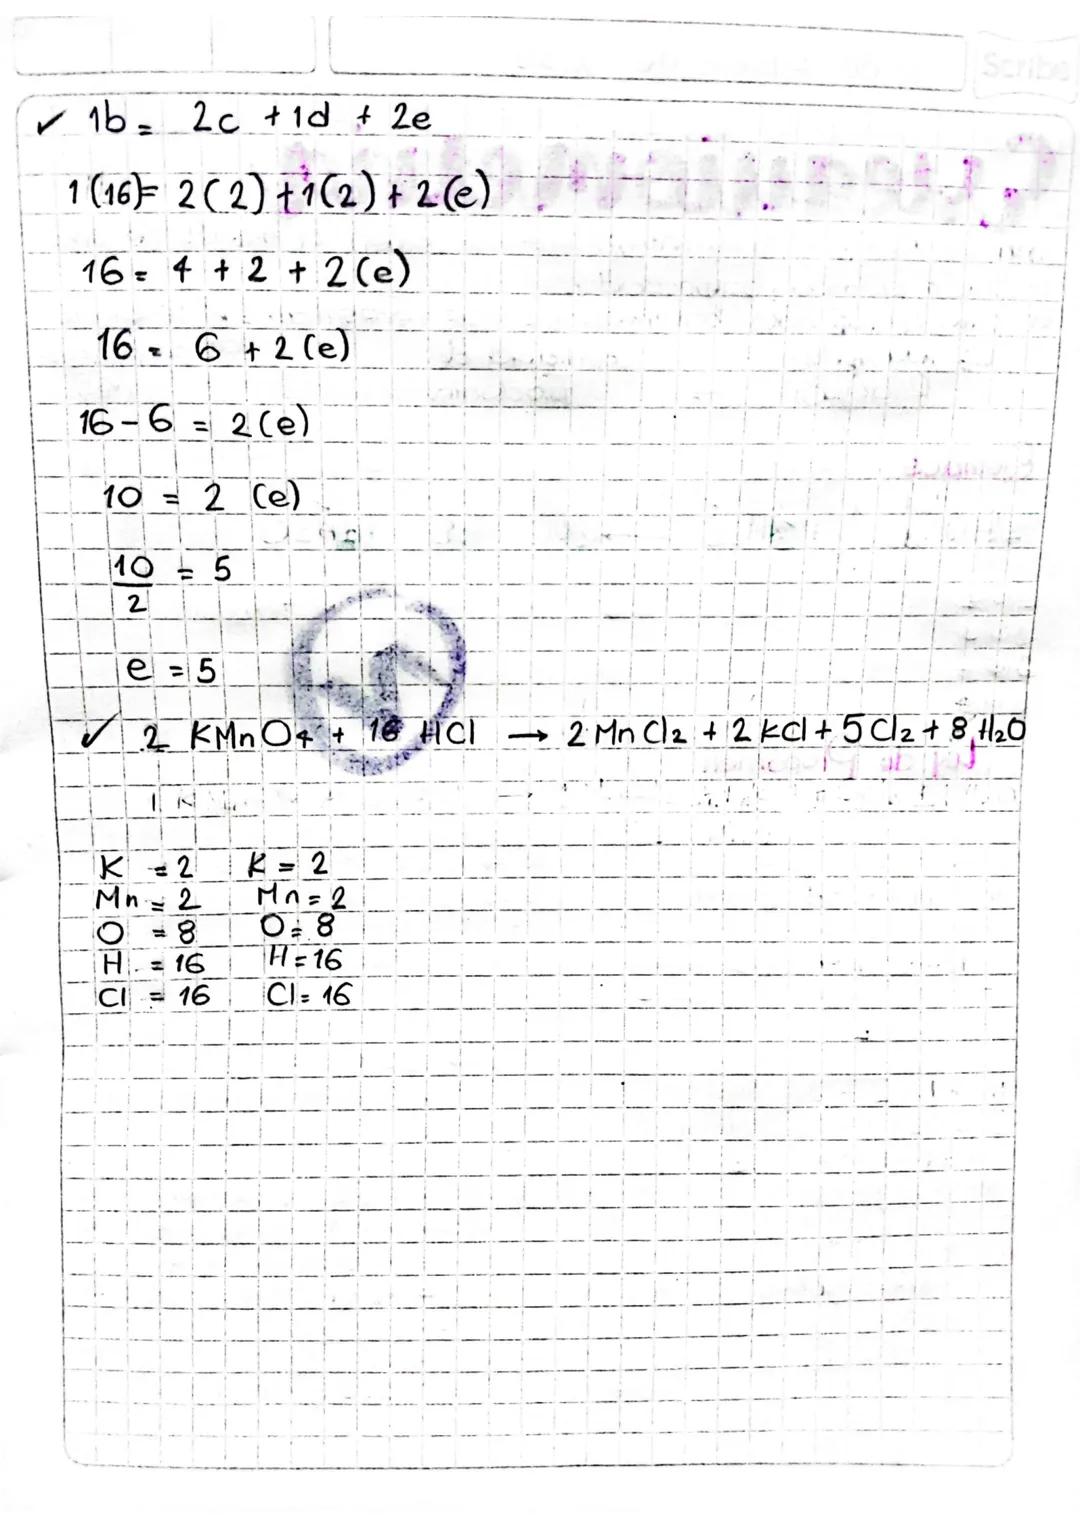 Scribe
✓ 1b = 2c + 1d + 2e
1(16) = 2(2) + 1(2) + 2(e)
16 = 4 + 2 + 2(e)
16 = 6 + 2(e)
16 - 6 = 2(e)
10 = 2 (e)
10/2 = 5
e = 5
✓ 2 KMnO4 + 16 HCl → 2 MnCl2 + 2 KCl + 5 Cl2 + 8 H2O
K = 2 K = 2
Mn = 2 Mn = 2
O = 8 O = 8
H = 16 H = 16
Cl = 16 Cl = 16